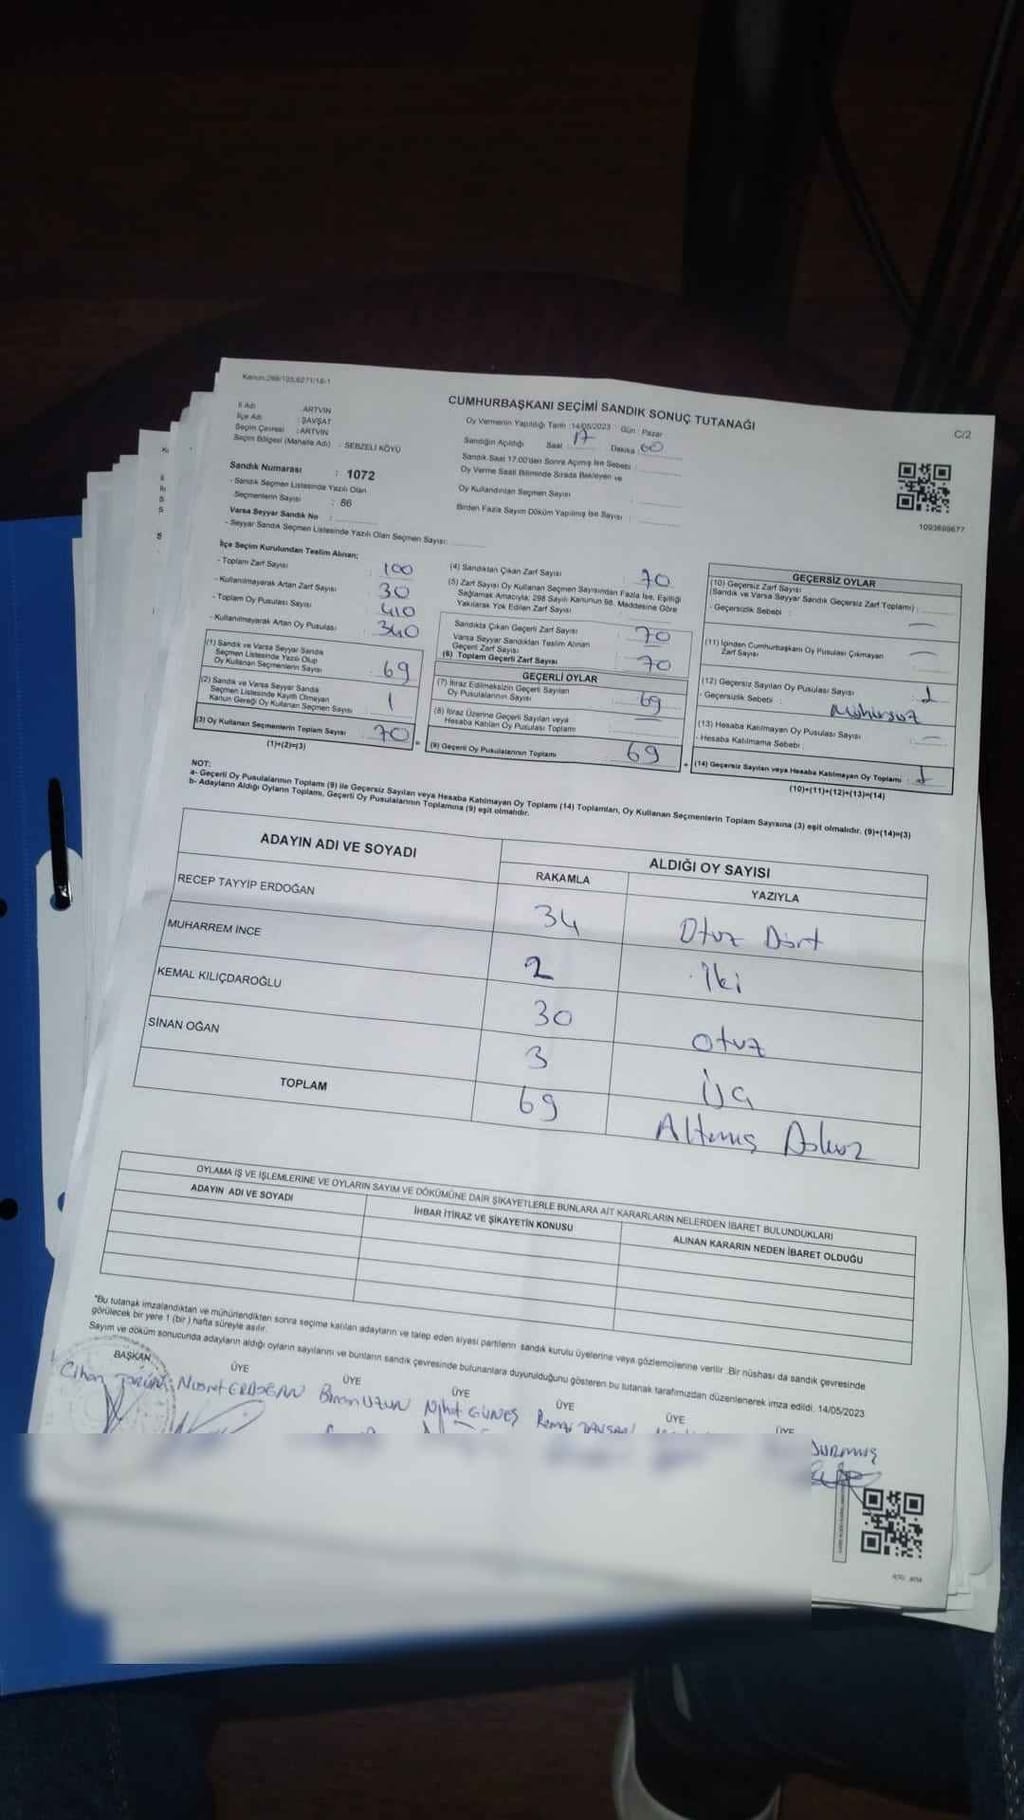 Kanun:298/105,6271/18-1
CUMHURBAŞKANI SEÇİMİ SANDIK SONUÇ TUTANAĞI
C/2
İl Adı : ARTVİN
İlçe Adı : ŞAVŞAT
Seçim Çevresi : ARTVİN
Seçim Bölgesi (Mahalle Adı) : SEBZELİ KÖYÜ
Sandık Numarası : 1072
- Sandık Seçmen Listesinde Yazılı Olan
Seçmenlerin Sayısı : 86
Varsa Seyyar Sandık No :
- Seyyar Sandık Seçmen Listesinde Yazılı Olan Seçmen Sayısı:
Oy Vermenin Yapıldığı Tarih :14/05/2023 Gün : Pazar
Sandığın Açıldığı Saat 17 Dakika 00
Sandık Saat 17.00'den Sonra Açılmış İse Sebebi :
Oy Verme Saati Bitiminde Sırada Bekleyen ve
Oy Kullandırılan Seçmen Sayısı
Birden Fazla Sayım Döküm Yapılmış İse Sayısı :
1093699677
İlçe Seçim Kurulundan Teslim Alınan;
- Toplam Zarf Sayısı : 100
- Kullanılmayarak Artan Zarf Sayısı : 30
- Toplam Oy Pusulası Sayısı : 410
- Kullanılmayarak Artan Oy Pusulası : 340
(1) Sandık ve Varsa Seyyar Sandık
Seçmen Listesinde Yazılı Olup
Oy Kullanan Seçmenlerin Sayısı : 69
(2) Sandık ve Varsa Seyyar Sandık
Seçmen Listesinde Kayıtlı Olmayan
Kanun Gereği Oy Kullanan Seçmen Sayısı : 1
(3) Oy Kullanan Seçmenlerin Toplam Sayısı : 70
(1)+(2)=(3)
(4) Sandıktan Çıkan Zarf Sayısı : 70
(5) Zarf Sayısı Oy Kullanan Seçmen Sayısından Fazla İse, Eşitliği
Sağlamak Amacıyla; 298 Sayılı Kanunun 98. Maddesine Göre
Yakılarak Yok Edilen Zarf Sayısı :
Sandıkta Çıkan Geçerli Zarf Sayısı : 70
Varsa Seyyar Sandıktan Teslim Alınan
Geçerli Zarf Sayısı :
(6) Toplam Geçerli Zarf Sayısı : 70
GEÇERLİ OYLAR
(7) İtiraz Edilmeksizin Geçerli Sayılan
Oy Pusulalarının Sayısı : 69
(8) İtiraz Üzerine Geçerli Sayılan veya
Hesaba Katılan Oy Pusulası Toplamı : —
(9) Geçerli Oy Pusulalarının Toplamı : 69
GEÇERSİZ OYLAR
(10) Geçersiz Zarf Sayısı
(Sandık ve Varsa Seyyar Sandık Geçersiz Zarf Toplamı) :
- Geçersizlik Sebebi : —
(11) İçinden Cumhurbaşkanı Oy Pusulası Çıkmayan
Zarf Sayısı : —
(12) Geçersiz Sayılan Oy Pusulası Sayısı : 1
- Geçersizlik Sebebi : Mühürsüz
(13) Hesaba Katılmayan Oy Pusulası Sayısı : —
- Hesaba Katılmama Sebebi :
(14) Geçersiz Sayılan veya Hesaba Katılmayan Oy Toplamı : 1
(10)+(11)+(12)+(13)=(14)
NOT:
a- Geçerli Oy Pusulalarının Toplamı (9) ile Geçersiz Sayılan veya Hesaba Katılmayan Oy Toplamı (14) Toplamları, Oy Kullanan Seçmenlerin Toplam Sayısına (3) eşit olmalıdır. (9)+(14)=(3)
b- Adayların Aldığı Oyların Toplamı, Geçerli Oy Pusulalarının Toplamına (9) eşit olmalıdır.
ADAYIN ADI VE SOYADI
ALDIĞI OY SAYISI
RAKAMLA YAZIYLA
RECEP TAYYİP ERDOĞAN 34 Otuz Dört
MUHARREM İNCE 2 İki
KEMAL KILIÇDAROĞLU 30 otuz
SİNAN OĞAN 3 üç
TOPLAM 69 Altmış Dokuz
OYLAMA İŞ VE İŞLEMLERİNE VE OYLARIN SAYIM VE DÖKÜMÜNE DAİR ŞİKAYETLERLE BUNLARA AİT KARARLARIN NELERDEN İBARET BULUNDUKLARI
ADAYIN ADI VE SOYADI İHBAR İTİRAZ VE ŞİKAYETİN KONUSU ALINAN KARARIN NEDEN İBARET OLDUĞU
"Bu tutanak imzalandıktan ve mühürlendikten sonra seçime katılan adayların ve talep eden siyasi partilerin sandık kurulu üyelerine veya gözlemcilerine verilir. Bir nüshası da sandık çevresinde
görülecek bir yere 1 (bir) hafta süreyle asılır.
Sayım ve döküm sonucunda adayların aldığı oyların sayılarını ve bunların sandık çevresinde bulunanlara duyurulduğunu gösteren bu tutanak tarafımızdan düzenlenerek imza edildi. 14/05/2023
BAŞKAN ÜYE ÜYE ÜYE ÜYE ÜYE ÜYE
Cihan Nihat GÜNEŞ
DURMUŞ